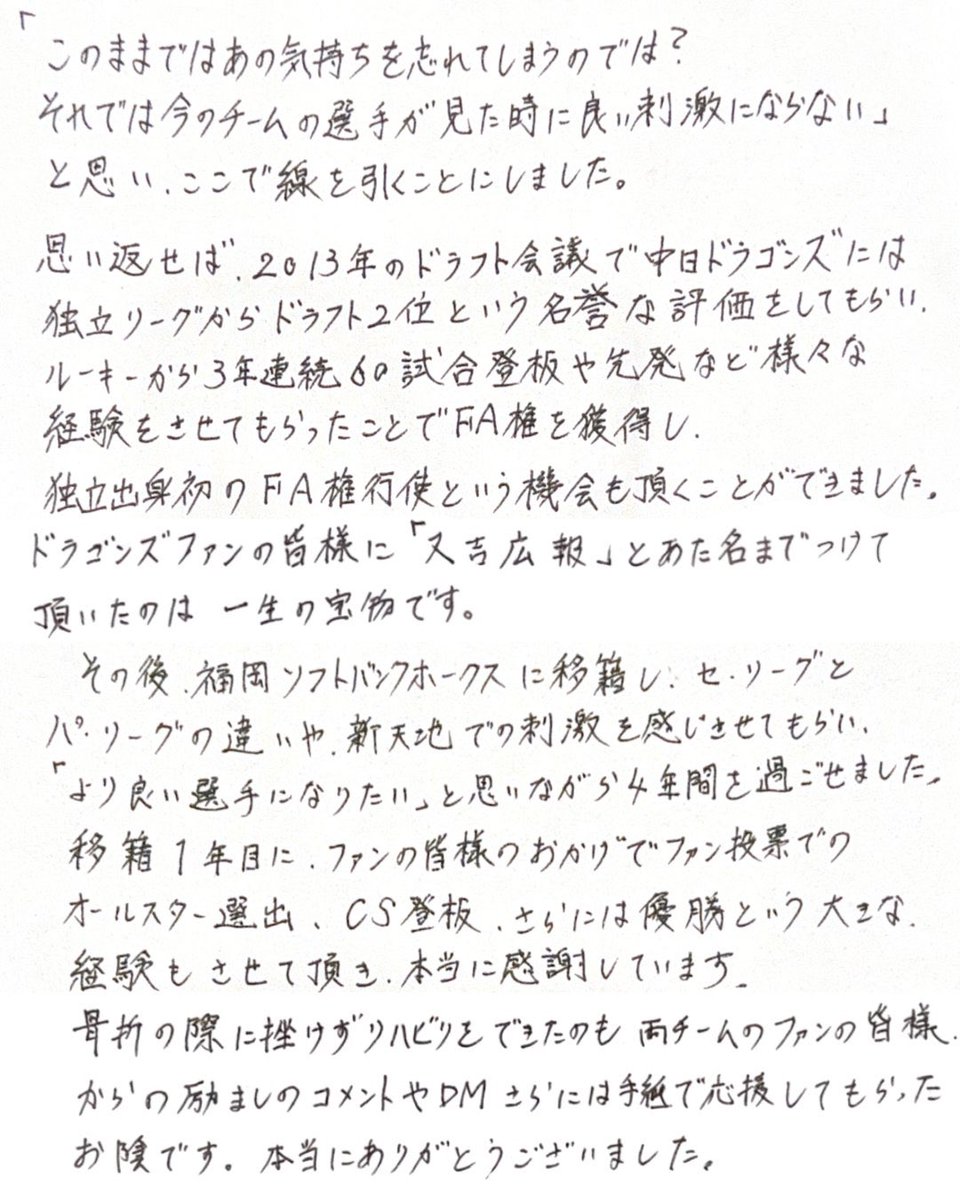 「
このままではあの気持ちを忘れてしまうのでは?
それでは今のチームの選手が見た時に良い刺激にならない」
と思い、ここで線を引くことにしました。
思い返せば、2013年のドラフト会議で中日ドラゴンズには
独立リーグからドラフト2位という名誉な評価をしてもらい、
ルーキーから3年連続60試合登板や先発など様々な
経験をさせてもらったことでFA権を獲得し、
独立出身初のFA権行使という機会も頂くことができました。
ドラゴンズファンの皆様に「又吉広報」とあだ名までつけて
頂いたのは一生の宝物です。
その後、福岡ソフトバンクホークスに移籍し、セ・リーグと
パ・リーグの違いや、新天地での刺激を感じさせてもらい、
「より良い選手になりたい」と思いながら4年間を過ごせました。
移籍1年目に、ファンの皆様のおかげでファン投票での
オールスター選出、CS登板、さらには優勝という大きな、
経験もさせて頂き、本当に感謝しています。
骨折の際に挫けずリハビリをできたのも両チームのファンの皆様、
からの励ましのコメントやDMさらには手紙で応援してもらった
お陰です。本当にありがとうございました。